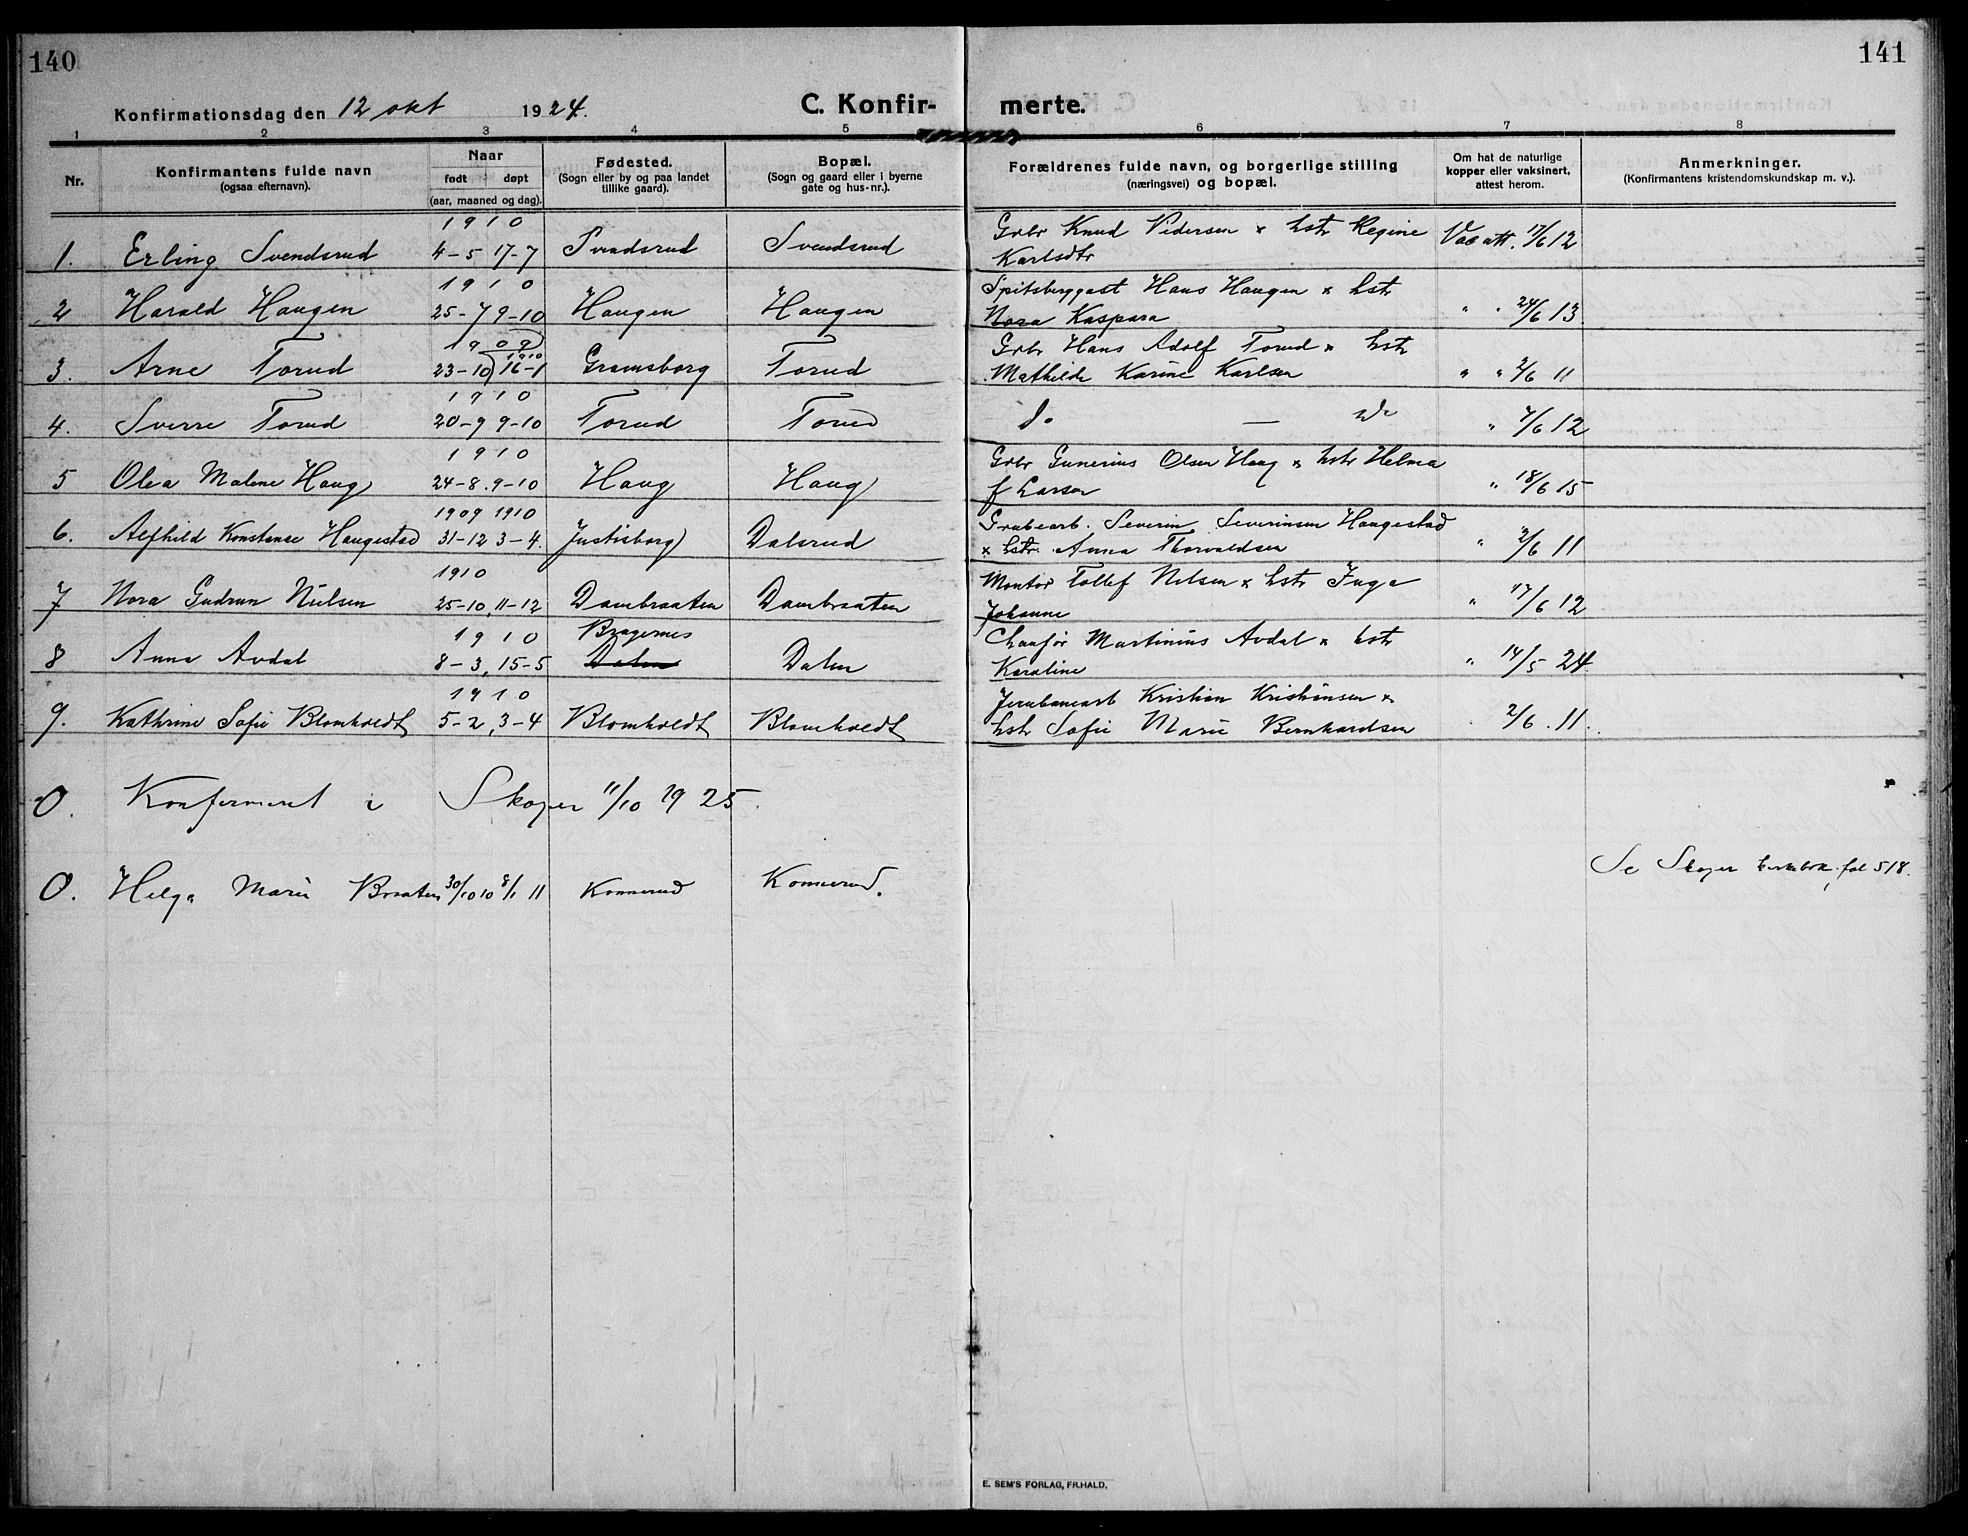 140
141
Konfirmationsdag den 12 okt 1924.
C. Konfir-
merte.
1 2 3 4 5 6 7 8
Nr.
Konfirmantens fulde navn
(ogsaa efternavn).
Naar
født døpt
(aar, maaned og dag).
Fødested.
(Sogn eller by og paa landet
tillike gaard).
Bopæl.
(Sogn og gaard eller i byerne
gate og hus-nr.).
Forældrenes fulde navn, og borgerlige stilling
(næringsvei) og bopæl.
Om hat de naturlige
kopper eller vaksinert,
attest herom.
Anmerkninger.
(Konfirmantens kristendomskundskap m. v.).
1910
1. Erling Svendsrud 4-5 17-7 Svendsrud Svendsrud
Grbr Knud Pedersen x hstr Regine
Karlsdtr
Vac att. 17/6 12
1910
2 Harald Haugen 25-7 9-10 Haugen Haugen
Spitsberggast Hans Haugen x hstr
Nora Kaspara
" " 24/6 13
1909
1910
3. Arne Torud 23-10 16-1 Gramsborg Torud
Grbr Hans Adolf Torud x hstr
Mathilde Karine Karlsen
" " 2/6 11
1910
4. Sverre Torud 20-9 9-10 Torud Torud
do — do
" 7/6 12
1910
5 Olea Malene Haug 24-8 9-10 Haug Haug
Grbr Gunerius Olsen Haug x hstr Helma
f Larsen
" 18/6 15
1909 1910
6. Alfhild Konstanse Haugestad 31-12 3-4. Justisborg Dalsrud
Grubearb. Severin Severinsen Haugestad
x hstr. Anna Thorvaldsen
" 2/6 11
1910
7 Nora Gudrun Nielsen 25-10, 11-12 Dambraaten Dambraaten
Montør Tollef Nilsen x hstr Inga
Johanne
" 17/6 12
1910 Bragernes
8 Anna Avdal 8-3, 15-5 Dalen Dalen
Chauffør Martinius Avdal x hstr
Karoline
" 14/5 24.
1910
9. Kathrine Sofie Blomholdt 5-2, 3-4 Blomholdt Blomholdt
Jernbanearb Kristian Kristiansen x
hstr Sofie Marie Bernhardsen
" 2/6. 11.
0. Konfirmert i Skoger 11/10 1925.
0. Helga Marie Braaten 30/10 10 8/1 11 Konnerud Konnerud.
Se Skoger kirkebok, fol 518.
E. SEM'S FORLAG, FR.HALD.